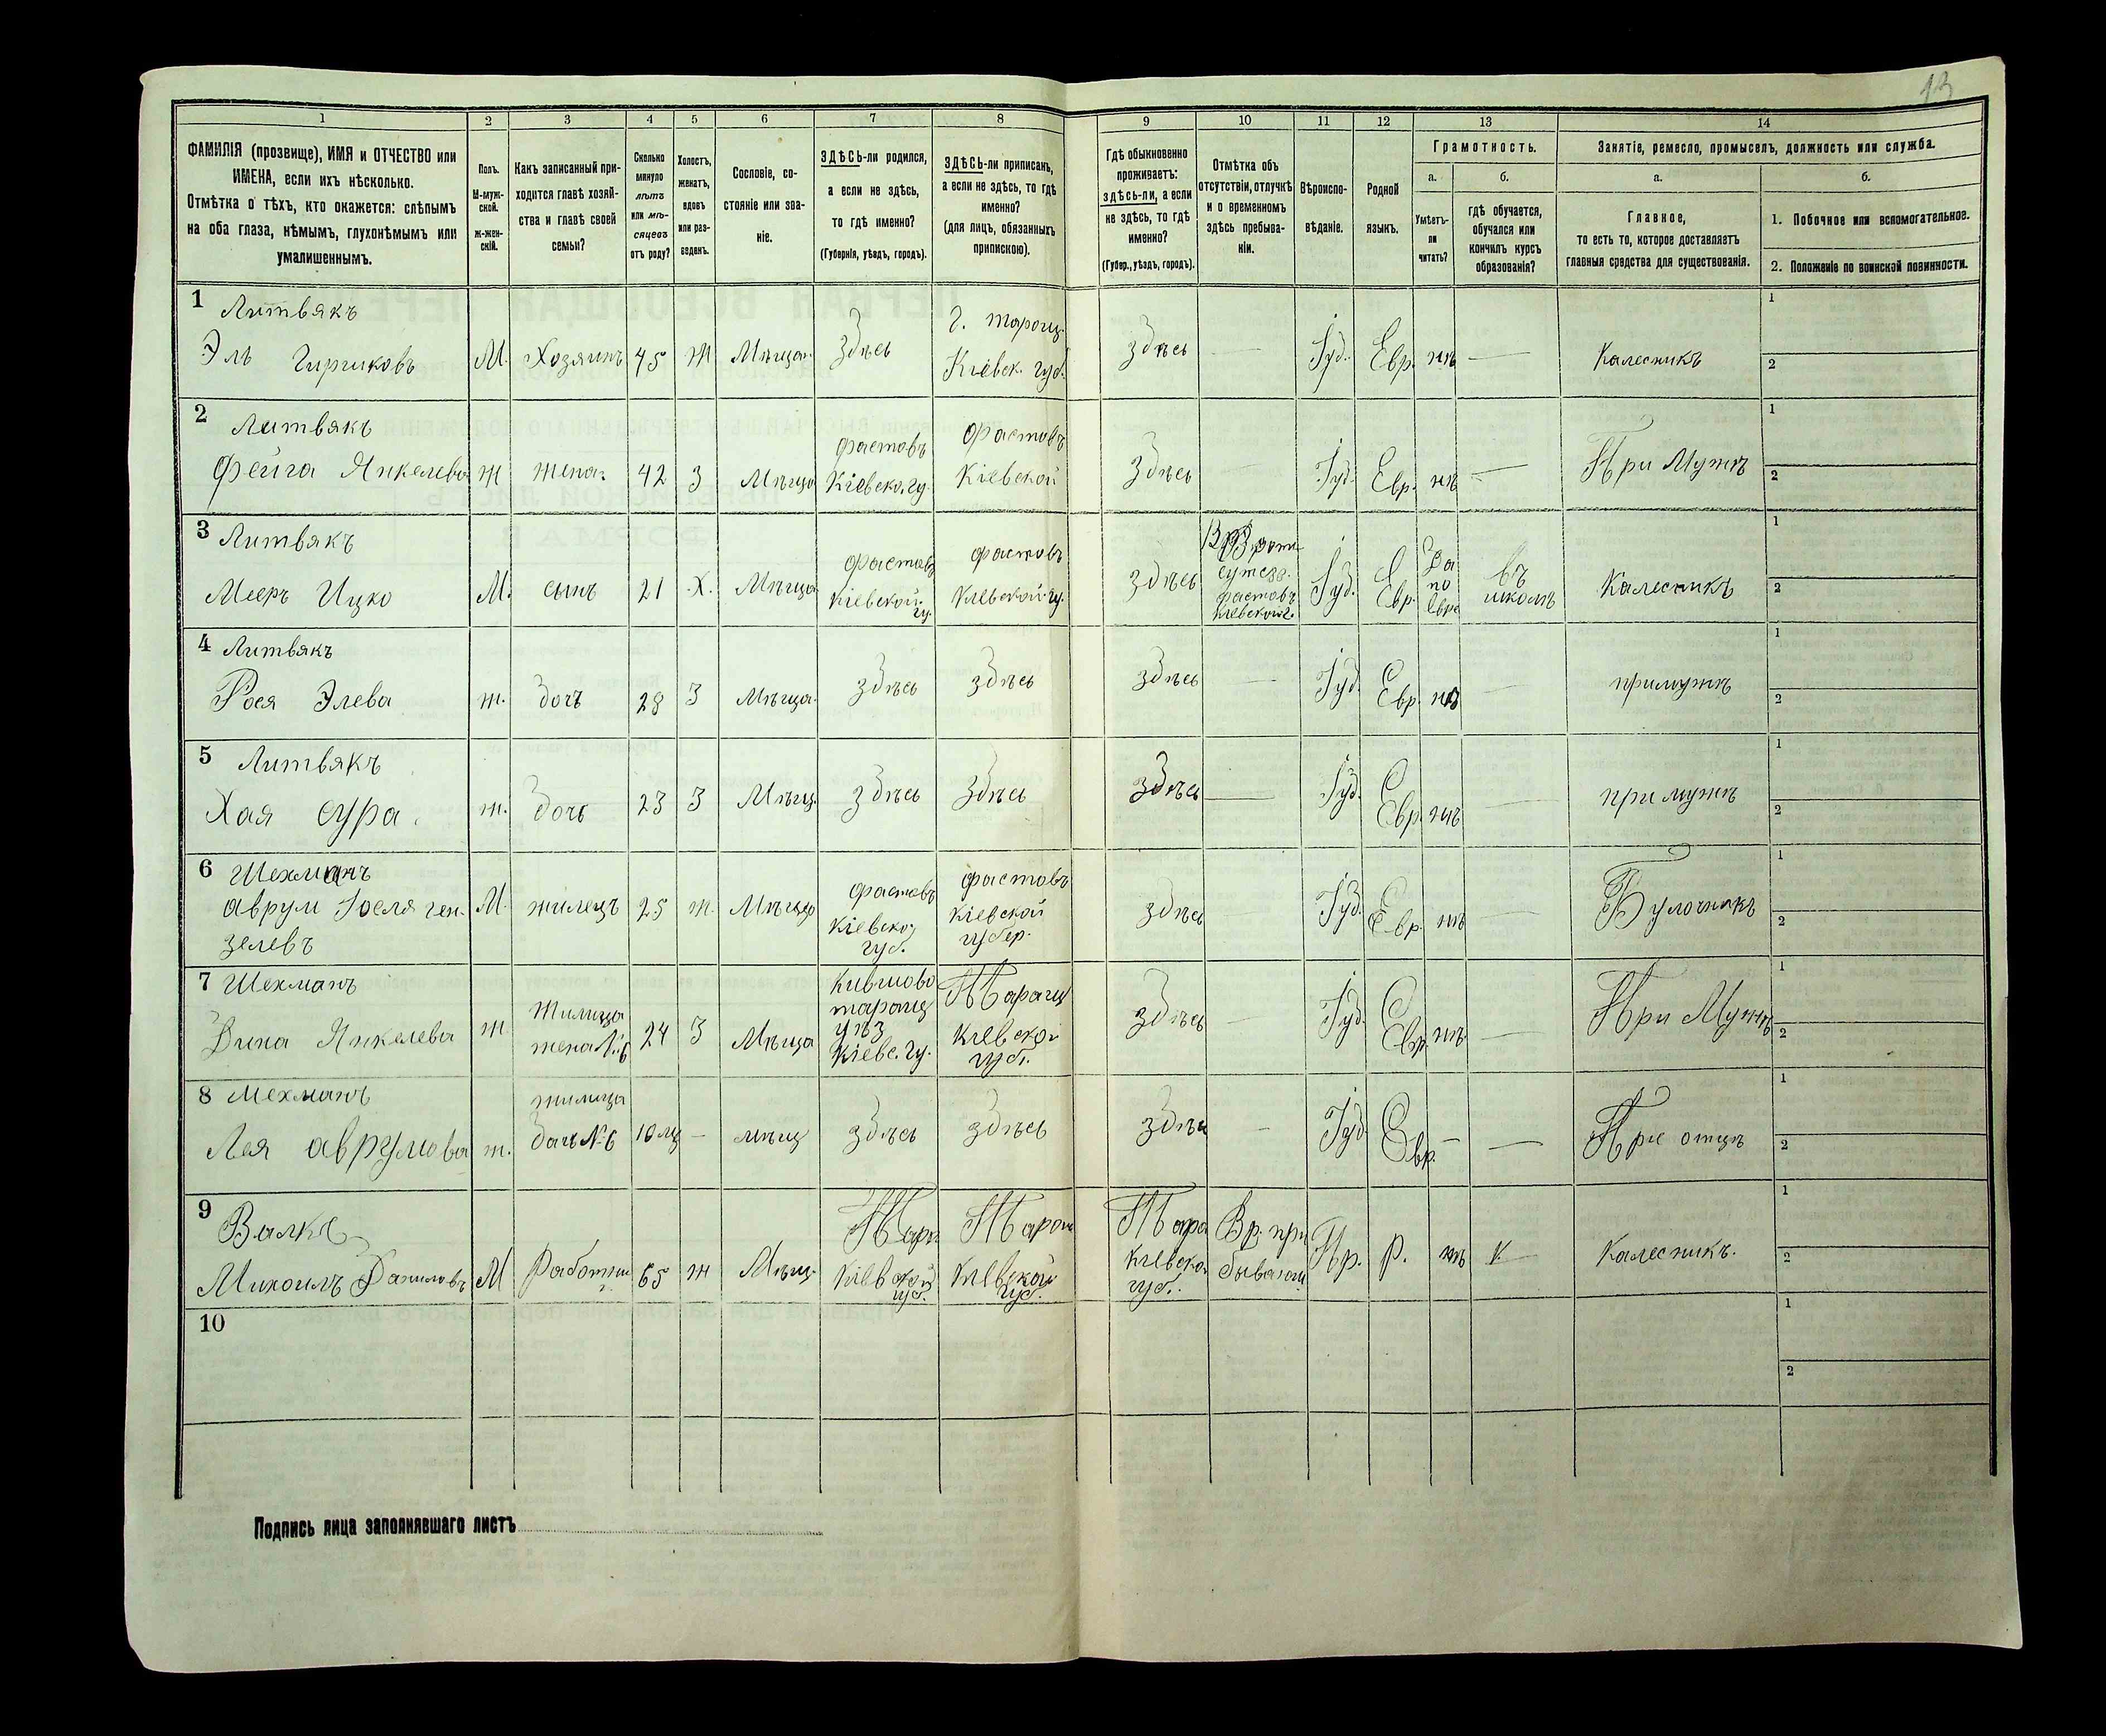 13
1 2 3 4 5 6 7 8 9 10 11 12 13 14
ФАМИЛІЯ (прозвище), ИМЯ и ОТЧЕСТВО или
ИМЕНА, если ихъ нѣсколько.
Отмѣтка о тѣхъ, кто окажется: слѣпымъ
на оба глаза, нѣмымъ, глухонѣмымъ или
умалишеннымъ.
Полъ.
М-муж-
ской.
Ж-жен-
скій.
Какъ записанный при-
ходится главѣ хозяй-
ства и главѣ своей
семьи?
Сколько
минуло
лѣтъ
или мѣ-
сяцевъ
отъ роду?
Холостъ,
женатъ,
вдовъ
или раз-
веденъ.
Сословіе, со-
стояніе или зва-
ніе.
ЗДѢСЬ-ли родился,
а если не здѣсь,
то гдѣ именно?
(Губернія, уѣздъ, городъ).
ЗДѢСЬ-ли приписанъ,
а если не здѣсь, то гдѣ
именно?
(для лицъ, обязанныхъ
припискою).
Гдѣ обыкновенно
проживаетъ:
здѣсь-ли, а если
не здѣсь, то гдѣ
именно?
(Губер., уѣздъ, городъ).
Отмѣтка объ
отсутствіи, отлучкѣ
и о временномъ
здѣсь пребыва-
ніи.
Вѣроиспо-
вѣданіе.
Родной
языкъ.
Грамотность.
а.
Умѣетъ-
ли
читать?
б.
гдѣ обучается,
обучался или
кончилъ курсъ
образованія?
Занятіе, ремесло, промыселъ, должность или служба.
а.
Главное,
то есть то, которое доставляетъ
главныя средства для существованія.
б.
1. Побочное или вспомогательное.
2. Положеніе по воинской повинности.
1 Литвякъ
Эль Гиршковъ М. Хозяинъ 45 ж Мѣщан. Здѣсь
г. таращ.
Кіевск. губ.
Здѣсь — Іуд. Евр. нѣ — Калесникъ
1
2
2 Литвякъ
Фейга Янкелева ж жена. 42 З Мѣща
фастовъ
Кіевско. гу.
фастовъ
Кіевской
Здѣсь — Іуд. Евр. нѣ — При Мужѣ
1
2
3 Литвякъ
Мееръ Ицко М. сынъ 21 Х. Мѣща
фастовъ
Кіевской
гу.
фастовъ
Кіевской гу.
здѣсь
фастовъ
Кіевской г.
Іуд. Евр.
Да
по
Евре
въ
школѣ
Калесникъ
1
2
4 Литвякъ
Рося Элева ж. дочь 28 З Мѣща. здѣсь здѣсь здѣсь — Іуд. Евр. нѣ — примужѣ
1
2
5 Литвякъ
Хая сура. ж. дочь 23 З Мѣщ. здѣсь здѣсь здѣсь — Іуд. Евр. нѣ — при мужѣ
1
2
6 Шехманъ
аврум Іоселя ген.
зелевъ
М. жилецъ 25 ж. Мѣща
фастовъ
Кіевско
губ.
фастовъ
кіевской
губер.
здѣсь Іуд. Евр. нѣ — Булочникъ
1
2
7 Шехманъ
Дина Янкелева ж
жилица
жена №6
24 З Мѣща
таращ
уѣз
Кіевс. гу.
Таращ
Кіевской
губ.
здѣсь — Іуд. Евр. нѣ. — При Мужѣ
1
2
8 Шехманъ
Лея аврумова ж.
жилица
дочь №6
10 мц — мѣщ здѣсь здѣсь здѣсь — Іуд Евр. — — При отцѣ
1
2
9 Валкъ
Михаилъ Даниловъ М Работни 65 ж Мѣщ.
Тара
Кіевской
губ.
Таращ
Кіевской
губ.
Тара
Кіевско
губ.
Вр. при
бываю
Пр. Р. нѣ — Калесникъ.
1
2
10
1
2
Подпись лица заполнявшаго листъ